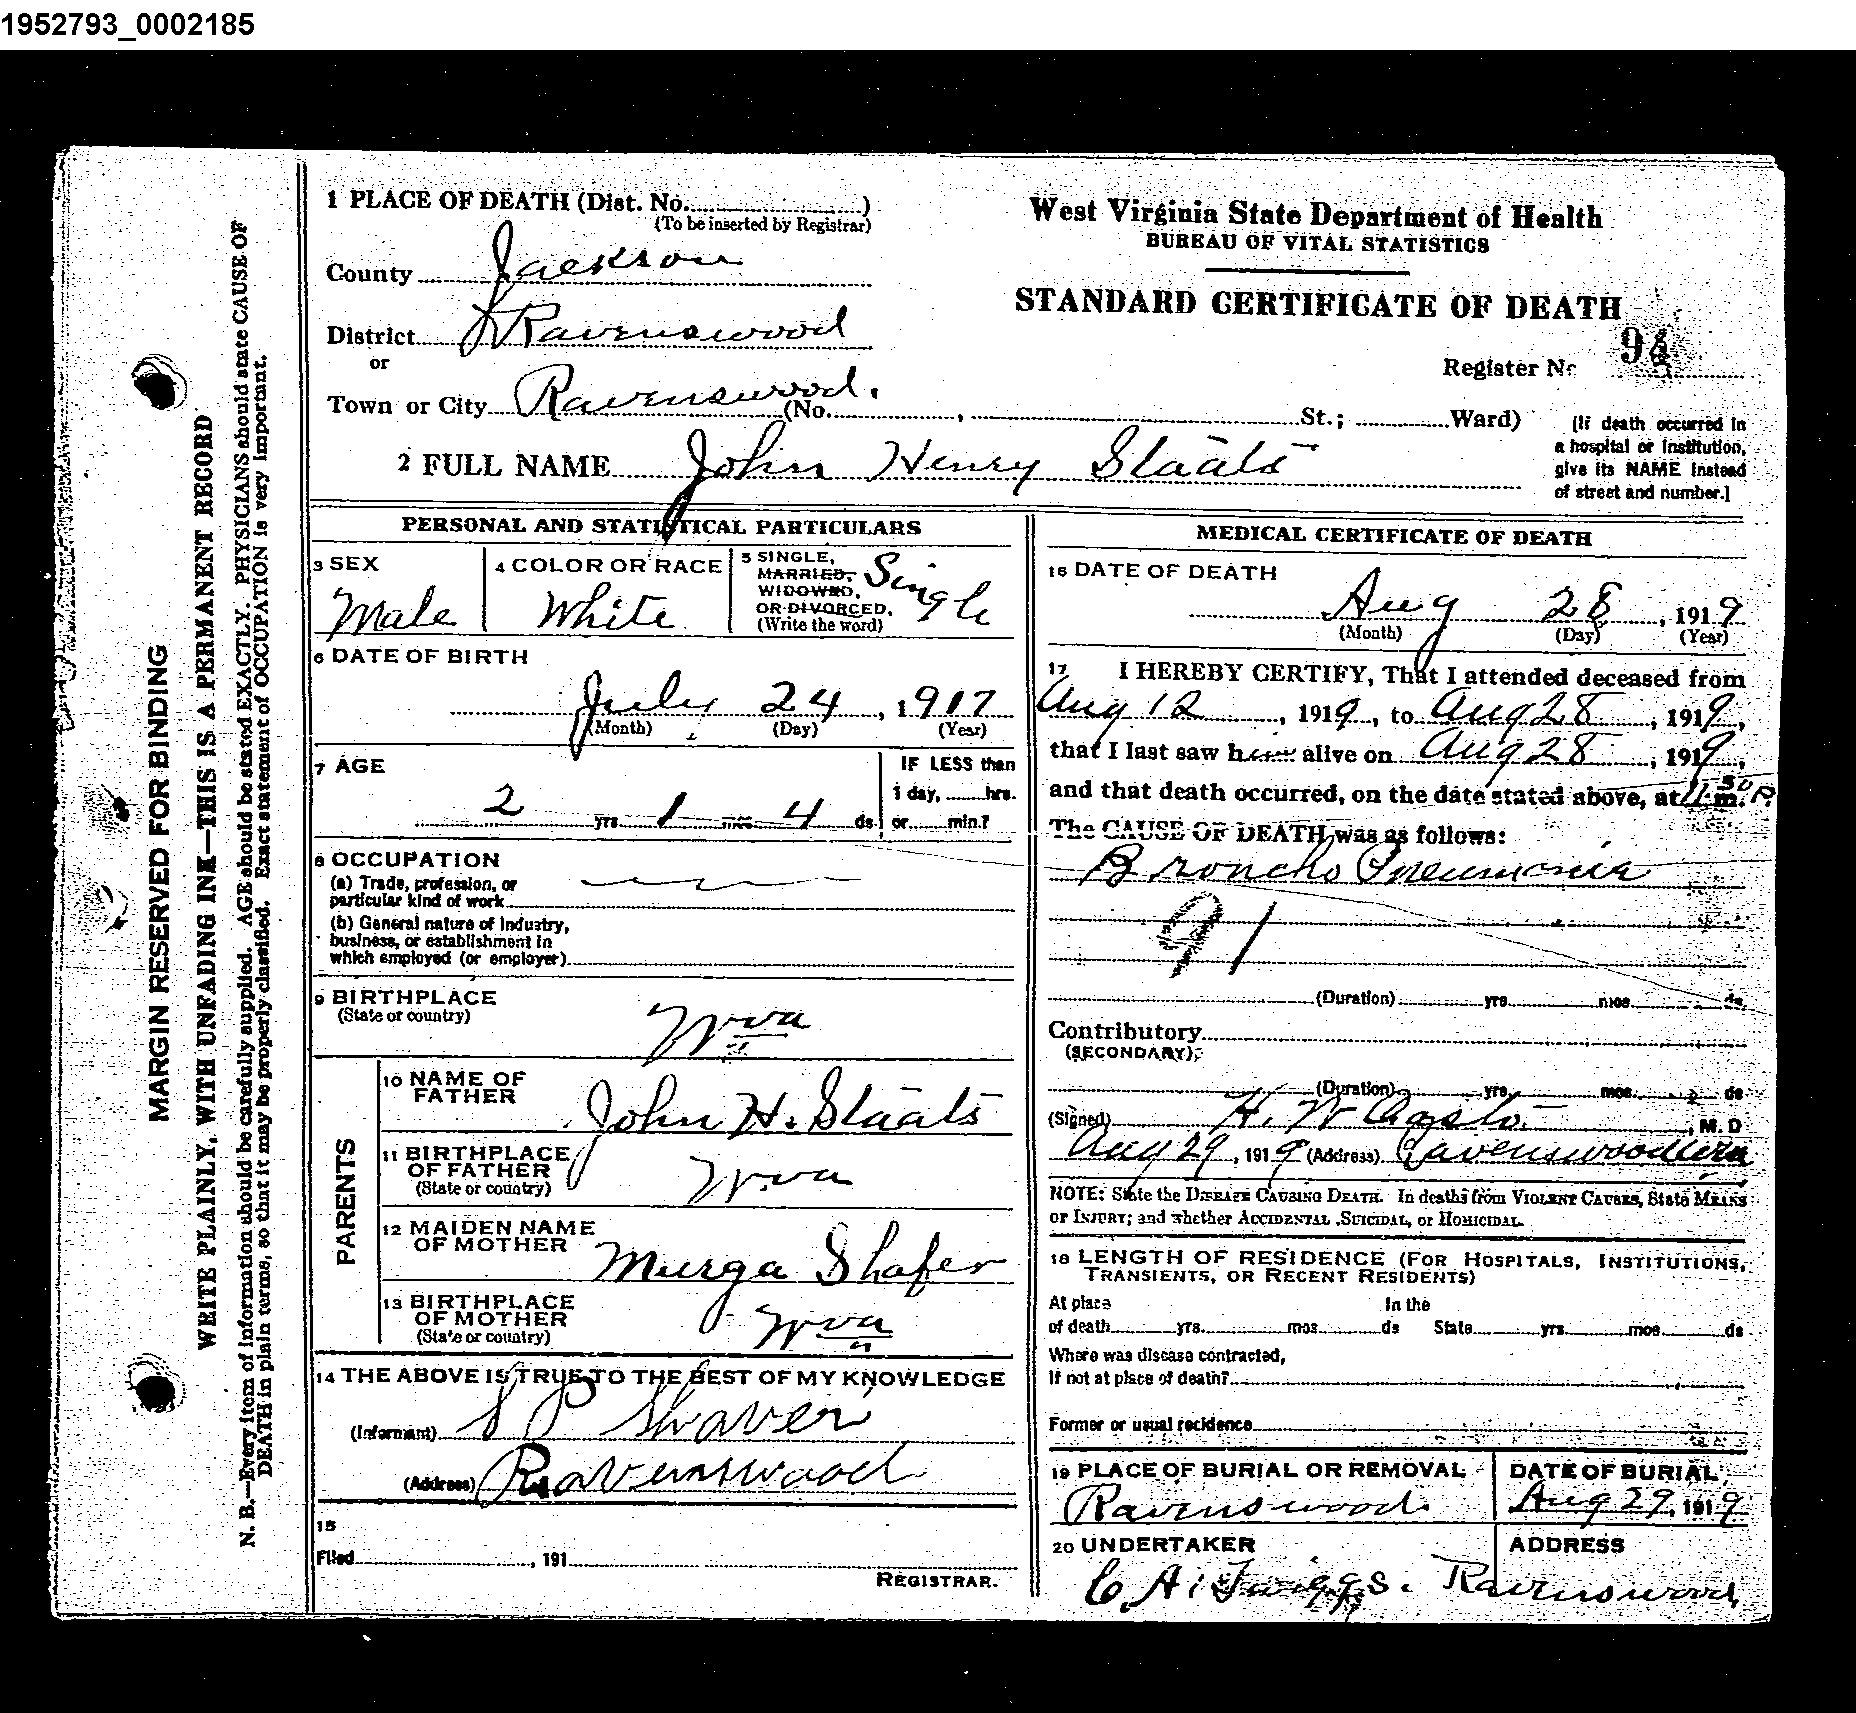 1952793_0002185
MARGIN RESERVED FOR BINDING
WRITE PLAINLY, WITH UNFADING INK—THIS IS A PERMANENT RECORD
N. B.—Every item of information should be carefully supplied. AGE should be stated EXACTLY. PHYSICIANS should state CAUSE OF
DEATH in plain terms, so that it may be properly classified. Exact statement of OCCUPATION is very important.
1 PLACE OF DEATH (Dist. No. )
(To be inserted by Registrar)
County Jackson
District Ravenswood
or
Town or City Ravenswood. (No. , St.; Ward)
West Virginia State Department of Health
BUREAU OF VITAL STATISTICS
STANDARD CERTIFICATE OF DEATH
Register No 94
[If death occurred in
a hospital or institution,
give its NAME instead
of street and number.]
2 FULL NAME John Henry Staats
PERSONAL AND STATISTICAL PARTICULARS
3 SEX
Male
4 COLOR OR RACE
White
5 SINGLE,
MARRIED,
WIDOWED,
OR DIVORCED.
(Write the word)
Single
6 DATE OF BIRTH
July 24, 1917
(Month) (Day) (Year)
7 AGE
2 yrs 1 mos 4 ds
IF LESS than
1 day, hrs.
or min.?
8 OCCUPATION
(a) Trade, profession, or
particular kind of work
(b) General nature of industry,
business, or establishment in
which employed (or employer)
9 BIRTHPLACE
(State or country)
W va
PARENTS
10 NAME OF
FATHER
John H. Staats
11 BIRTHPLACE
OF FATHER
(State or country)
W. va
12 MAIDEN NAME
OF MOTHER
Murga Shafer
13 BIRTHPLACE
OF MOTHER
(State or country)
W va
14 THE ABOVE IS TRUE TO THE BEST OF MY KNOWLEDGE
(Informant) S P Shaver
(Address) Ravenswood
15
Filed , 191
REGISTRAR.
MEDICAL CERTIFICATE OF DEATH
16 DATE OF DEATH
Aug 28, 1919
(Month) (Day) (Year)
17 I HEREBY CERTIFY, That I attended deceased from
Aug 12, 1919, to Aug 28, 1919,
that I last saw him alive on Aug 28, 1919,
and that death occurred, on the date stated above, at 11.50 P. m.
The CAUSE OF DEATH was as follows:
Broncho Pneumonia
91
(Duration) yrs. mos. ds
Contributory
(SECONDARY)
(Duration) yrs. mos. ds
(Signed) H. W , M. D
Aug 29, 1919 (Address) Ravenswood
NOTE: State the DISEASE CAUSING DEATH. In deaths from VIOLENT CAUSES, State MEANS
OF INJURY; and whether ACCIDENTAL, SUICIDAL, or HOMICIDAL.
18 LENGTH OF RESIDENCE (FOR HOSPITALS, INSTITUTIONS,
TRANSIENTS, OR RECENT RESIDENTS)
At place In the
of death yrs. mos ds State yrs. mos ds
Where was disease contracted,
If not at place of death?
Former or usual residence
19 PLACE OF BURIAL OR REMOVAL
Ravenswood.
DATE OF BURIAL
Aug 29, 1919
20 UNDERTAKER
C. A. Twiggs.
ADDRESS
Ravenswood